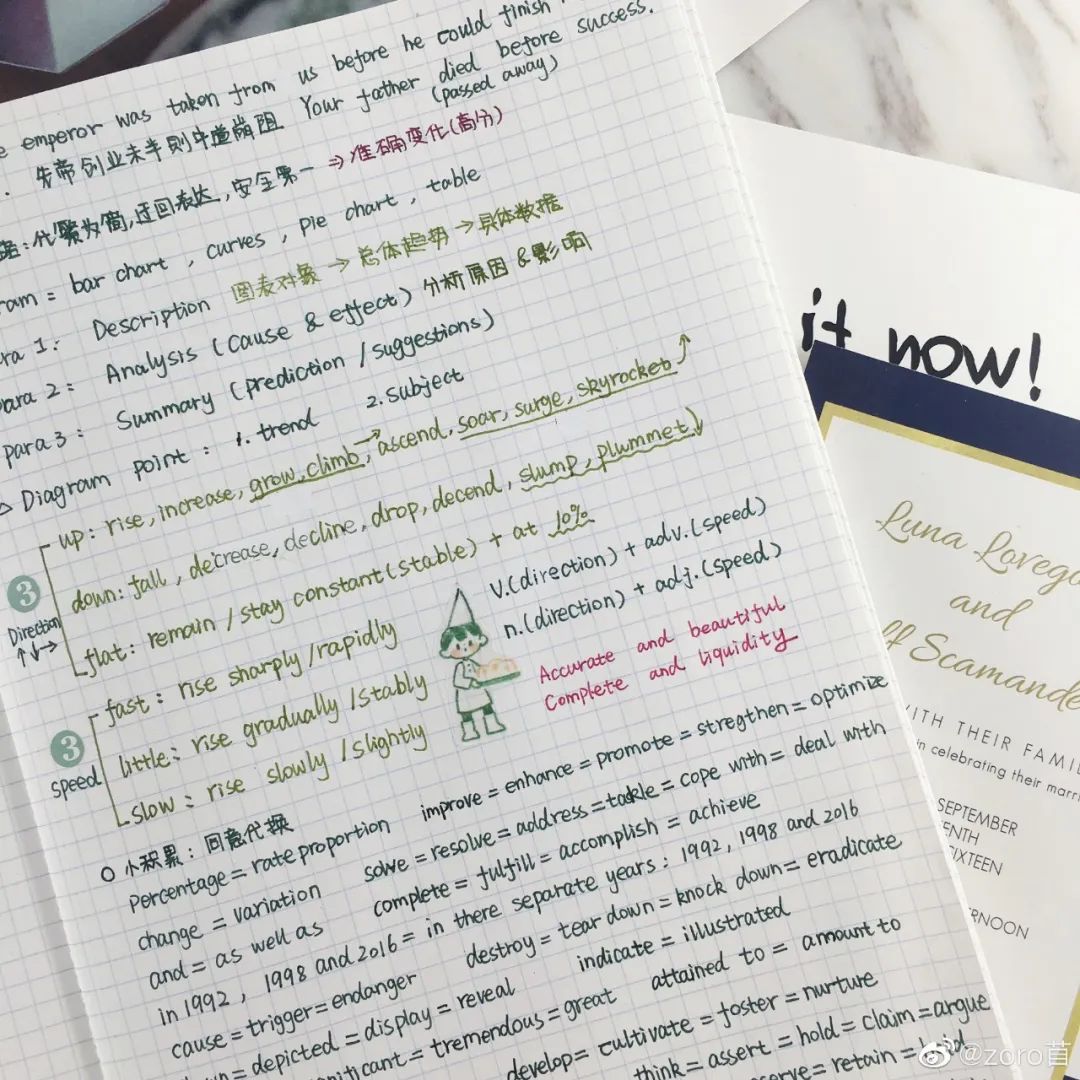 emperor was taken from us before he could finish
先帝创业未半则中道崩阻 Your father died before success.
(passed away)
:化繁为简,迂回表达,安全第一 ⇒准确变化(高分)
ram = bar chart , curves , pie chart , table
ra 1: Description 图表对象 → 总体趋势 → 具体数据
ara 2: Analysis (cause & effect) 分析原因 & 影响
para 3: Summary (prediction / suggestions)
△ Diagram point: 1. trend 2. subject
up: rise, increase, grow, climb, ascend, soar, surge, skyrocket
down: fall, decrease, decline, drop, decend, slump, plummet
flat: remain / stay constant (stable) + at 10%
3
Direction
↑↓→
V.(direction) + adv.(speed)
n.(direction) + adj.(speed)
fast: rise sharply / rapidly
little: rise gradually / stably
slow: rise slowly / slightly
3
speed
Accurate and beautiful
Complete and liquidity
O 小积累: 同意代换
percentage = rate proportion improve = enhance = promote = stregthen = optimize
change = variation solve = resolve = address = tackle = cope with = deal with
and = as well as complete = fulfill = accomplish = achieve
in 1992, 1998 and 2016 = in there separate years: 1992, 1998 and 2016
cause = trigger = endanger destroy = tear down = knock down = eradicate
= depicted = display = reveal indicate = illustrated
= tremendous = great attained to = amount to
develop = cultivate = foster = nurture
think = assert = hold = claim = argue
= retain =
it now!
Luna Lovego
and
ff Scamande
WITH THEIR FAMIL
in celebrating their marri
SEPTEMBER
ENTH
SIXTEEN
RNOON
@zoro苜